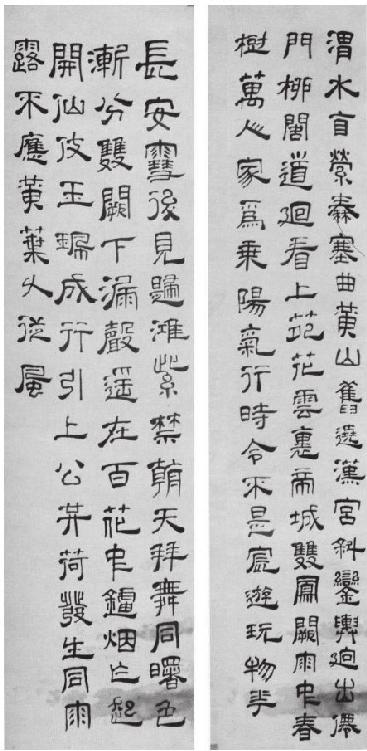 渭水自縈秦塞曲黃山舊遶漢宮斜鑾輿迥出僊
門柳閣道迴看上苑花雲裏帝城雙鳳闕雨中春
樹萬人家為乘陽氣行時令不是宸遊玩物華
長安雪後見歸鴻紫禁朝天拜舞同曙色
漸分雙闕下漏聲遙在百花中鑪烟乍起
開仙仗玉珮成行引上公共荷發生同雨
露不應黃葉久從風